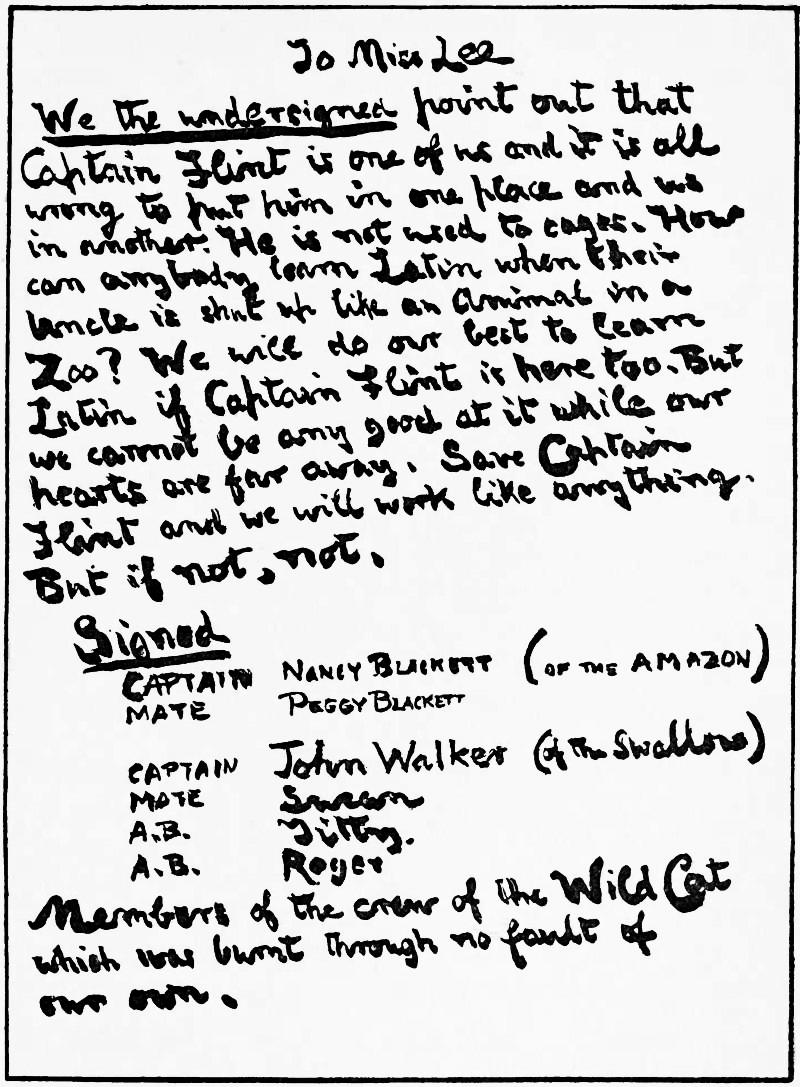 To Miss Lee
We the undersigned point out that
Captain Flint is one of us and it is all
wrong to put him in one place and us
in another. He is not used to cages. How
can anybody learn Latin when their
Uncle is shut up like an Animal in a
Zoo? We will do our best to learn
Latin if Captain Flint is here too. But
we cannot be any good at it while our
hearts are far away. Save Captain
Flint and we will work like anything.
But if not, not.
Signed
CAPTAIN NANCY BLACKETT (OF THE AMAZON)
MATE PEGGY BLACKETT
CAPTAIN John Walker (of the Swallow)
MATE Susan
A.B. Titty.
A.B. Roger
Members of the crew of the Wild Cat
which was burnt through no fault of
our own.